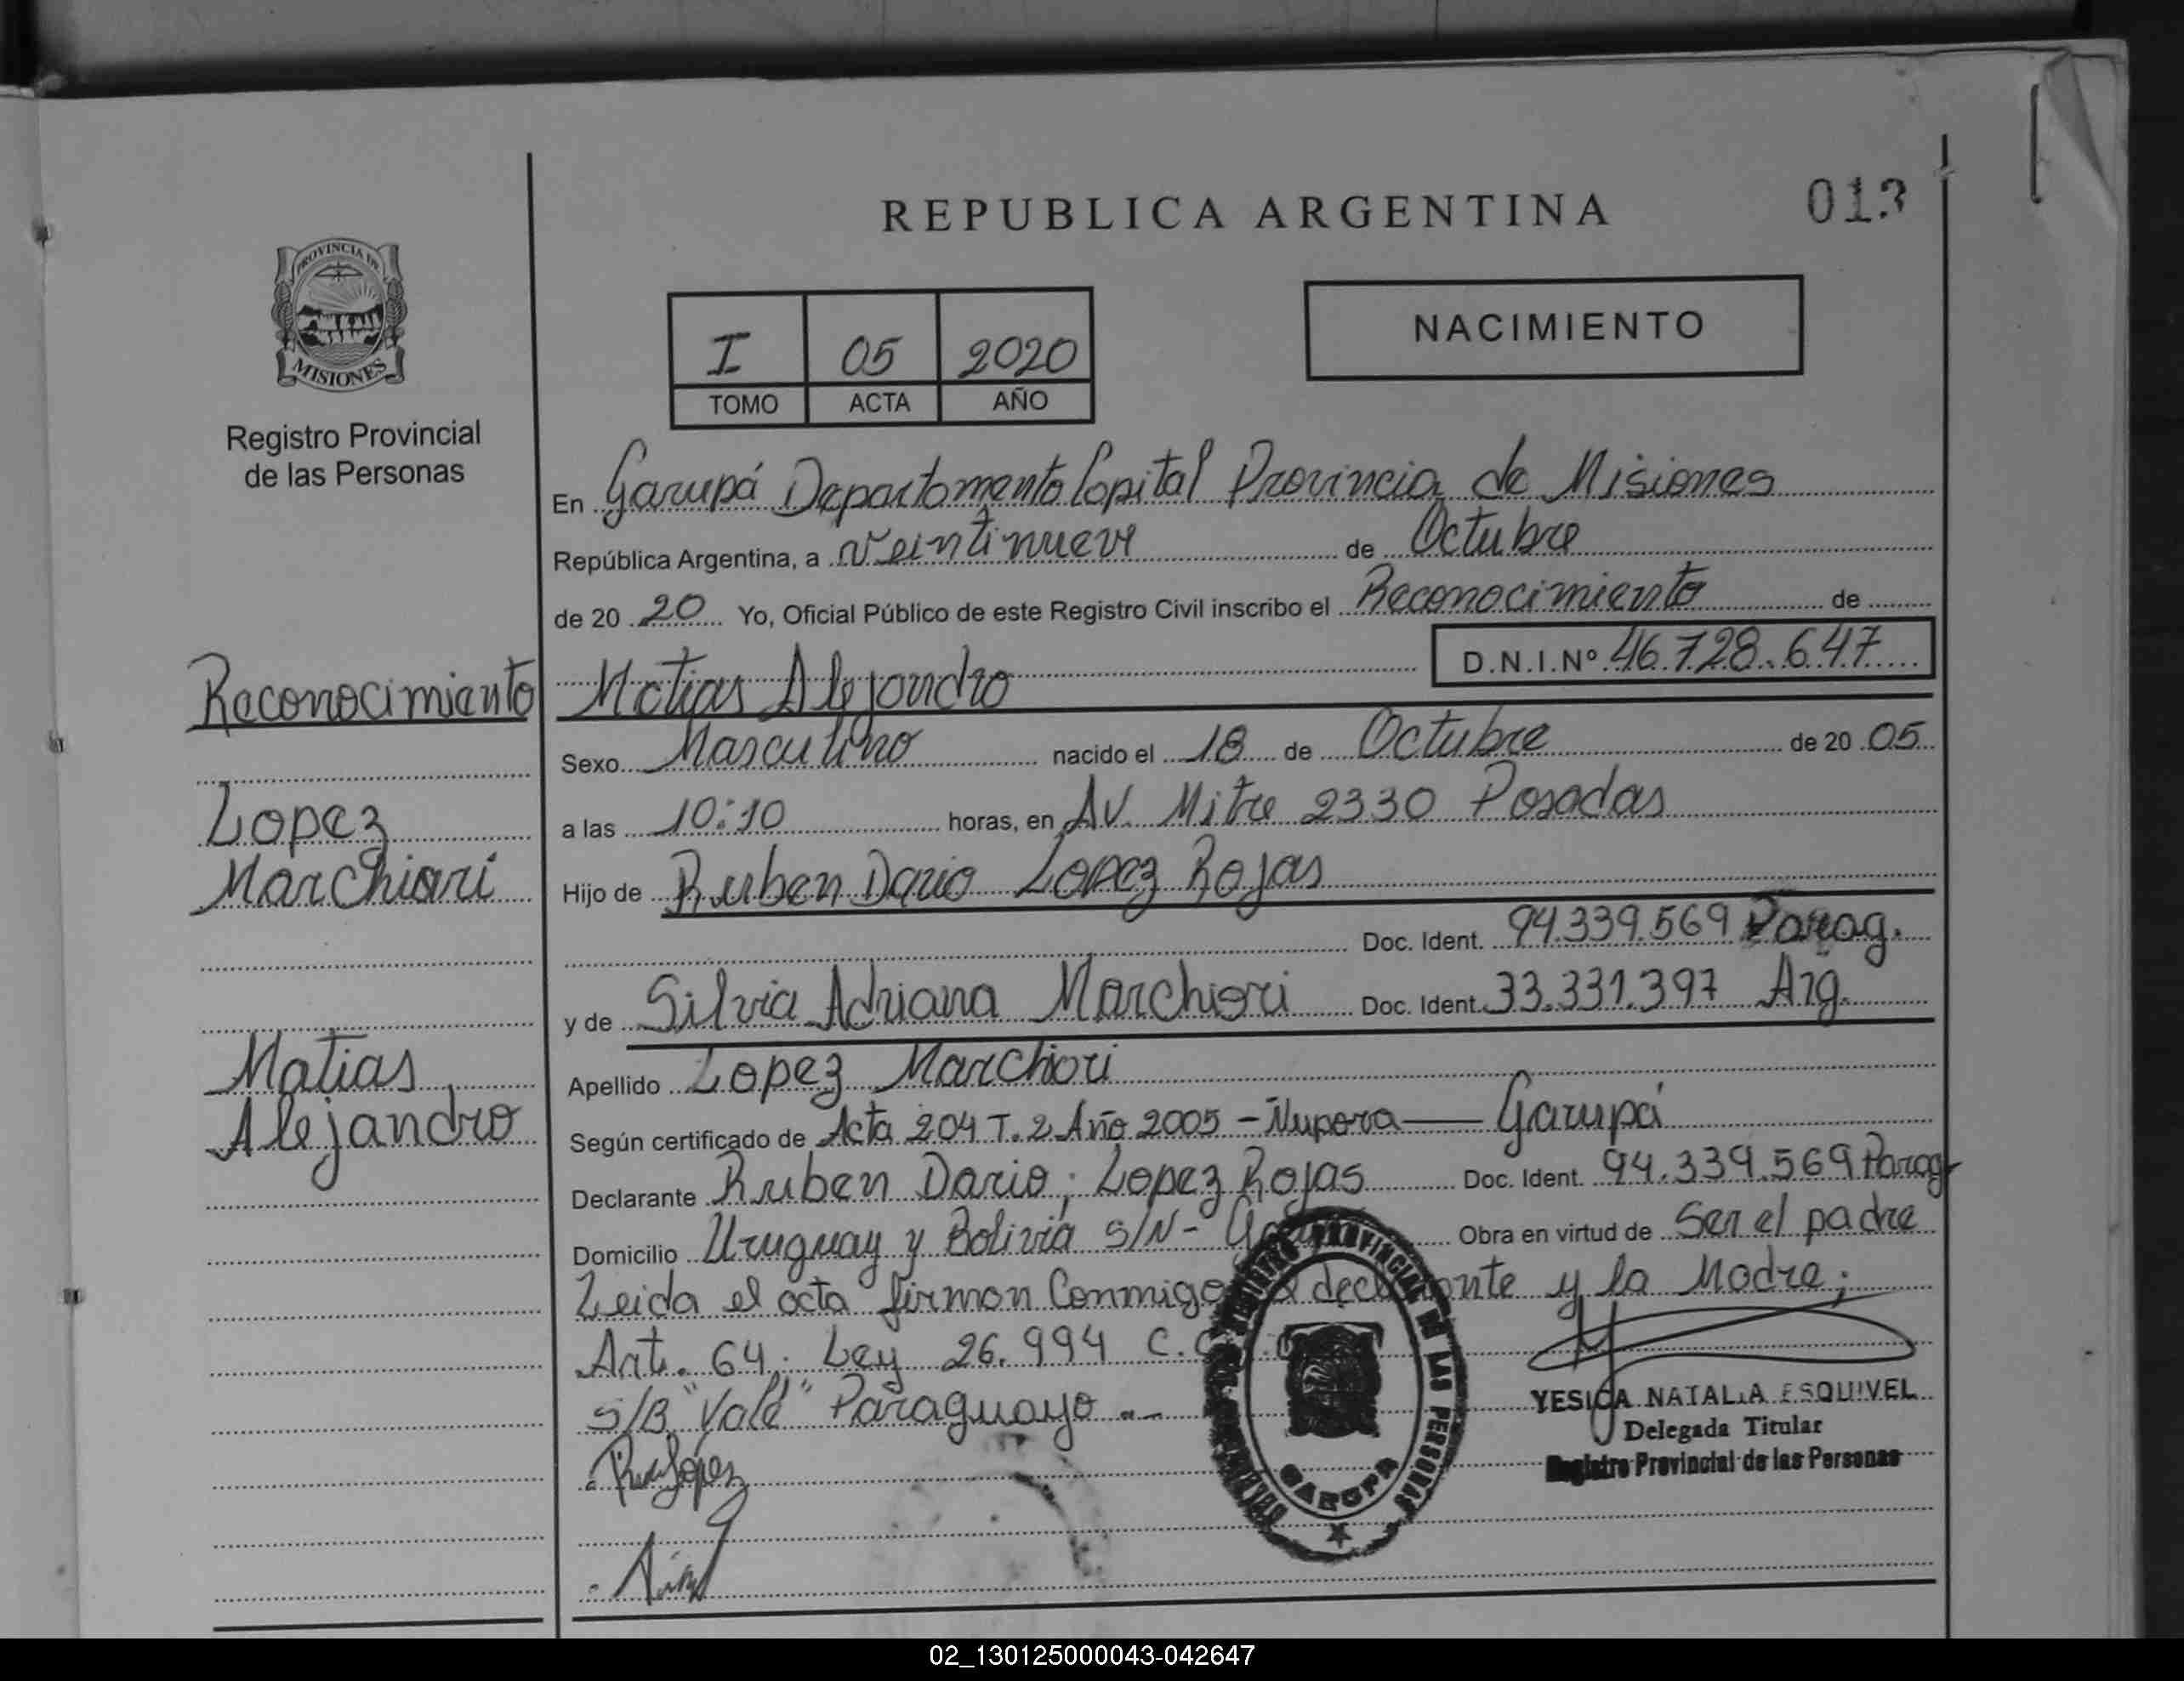 REPUBLICA ARGENTINA
013
PROVINCIA DE
MISIONES
Registro Provincial
de las Personas
I 05 2020
TOMO ACTA AÑO
NACIMIENTO
En Garupá Departamento Capital Provincia de Misiones
República Argentina, a veintinueve de Octubre
de 20 20 Yo, Oficial Público de este Registro Civil inscribo el Reconocimiento de
Matias Alejandro D.N.I.Nº 46.728.647
Sexo Masculino nacido el 18 de Octubre de 20 05
a las 10:10 horas, en Av. Mitre 2330 Posadas
Hijo de Ruben Dario Lopez Rojas
Doc. Ident. 94.339.569 Parag.
y de Silvia Adriana Marchiori Doc. Ident. 33.331.397 Arg.
Apellido Lopez Marchiori
Según certificado de Acta 204 T. 2 Año 2005 - Ñupora — Garupá
Declarante Ruben Dario; Lopez Rojas Doc. Ident. 94.339.569 Parag
Domicilio Uruguay y Bolivia S/N- Obra en virtud de Ser el padre
Leida el acta firman Conmigo declarante y la Madre;
Art. 64. Ley 26.994 C.C.
S/B "Vale" Paraguayo
Reconocimiento
Lopez
Marchiori
Matias
Alejandro
REGISTRO PROVINCIAL DE LAS PERSONAS
GARUPA
YESICA NATALIA ESQUIVEL
Delegada Titular
Registro Provincial de las Personas
López
02_130125000043-042647